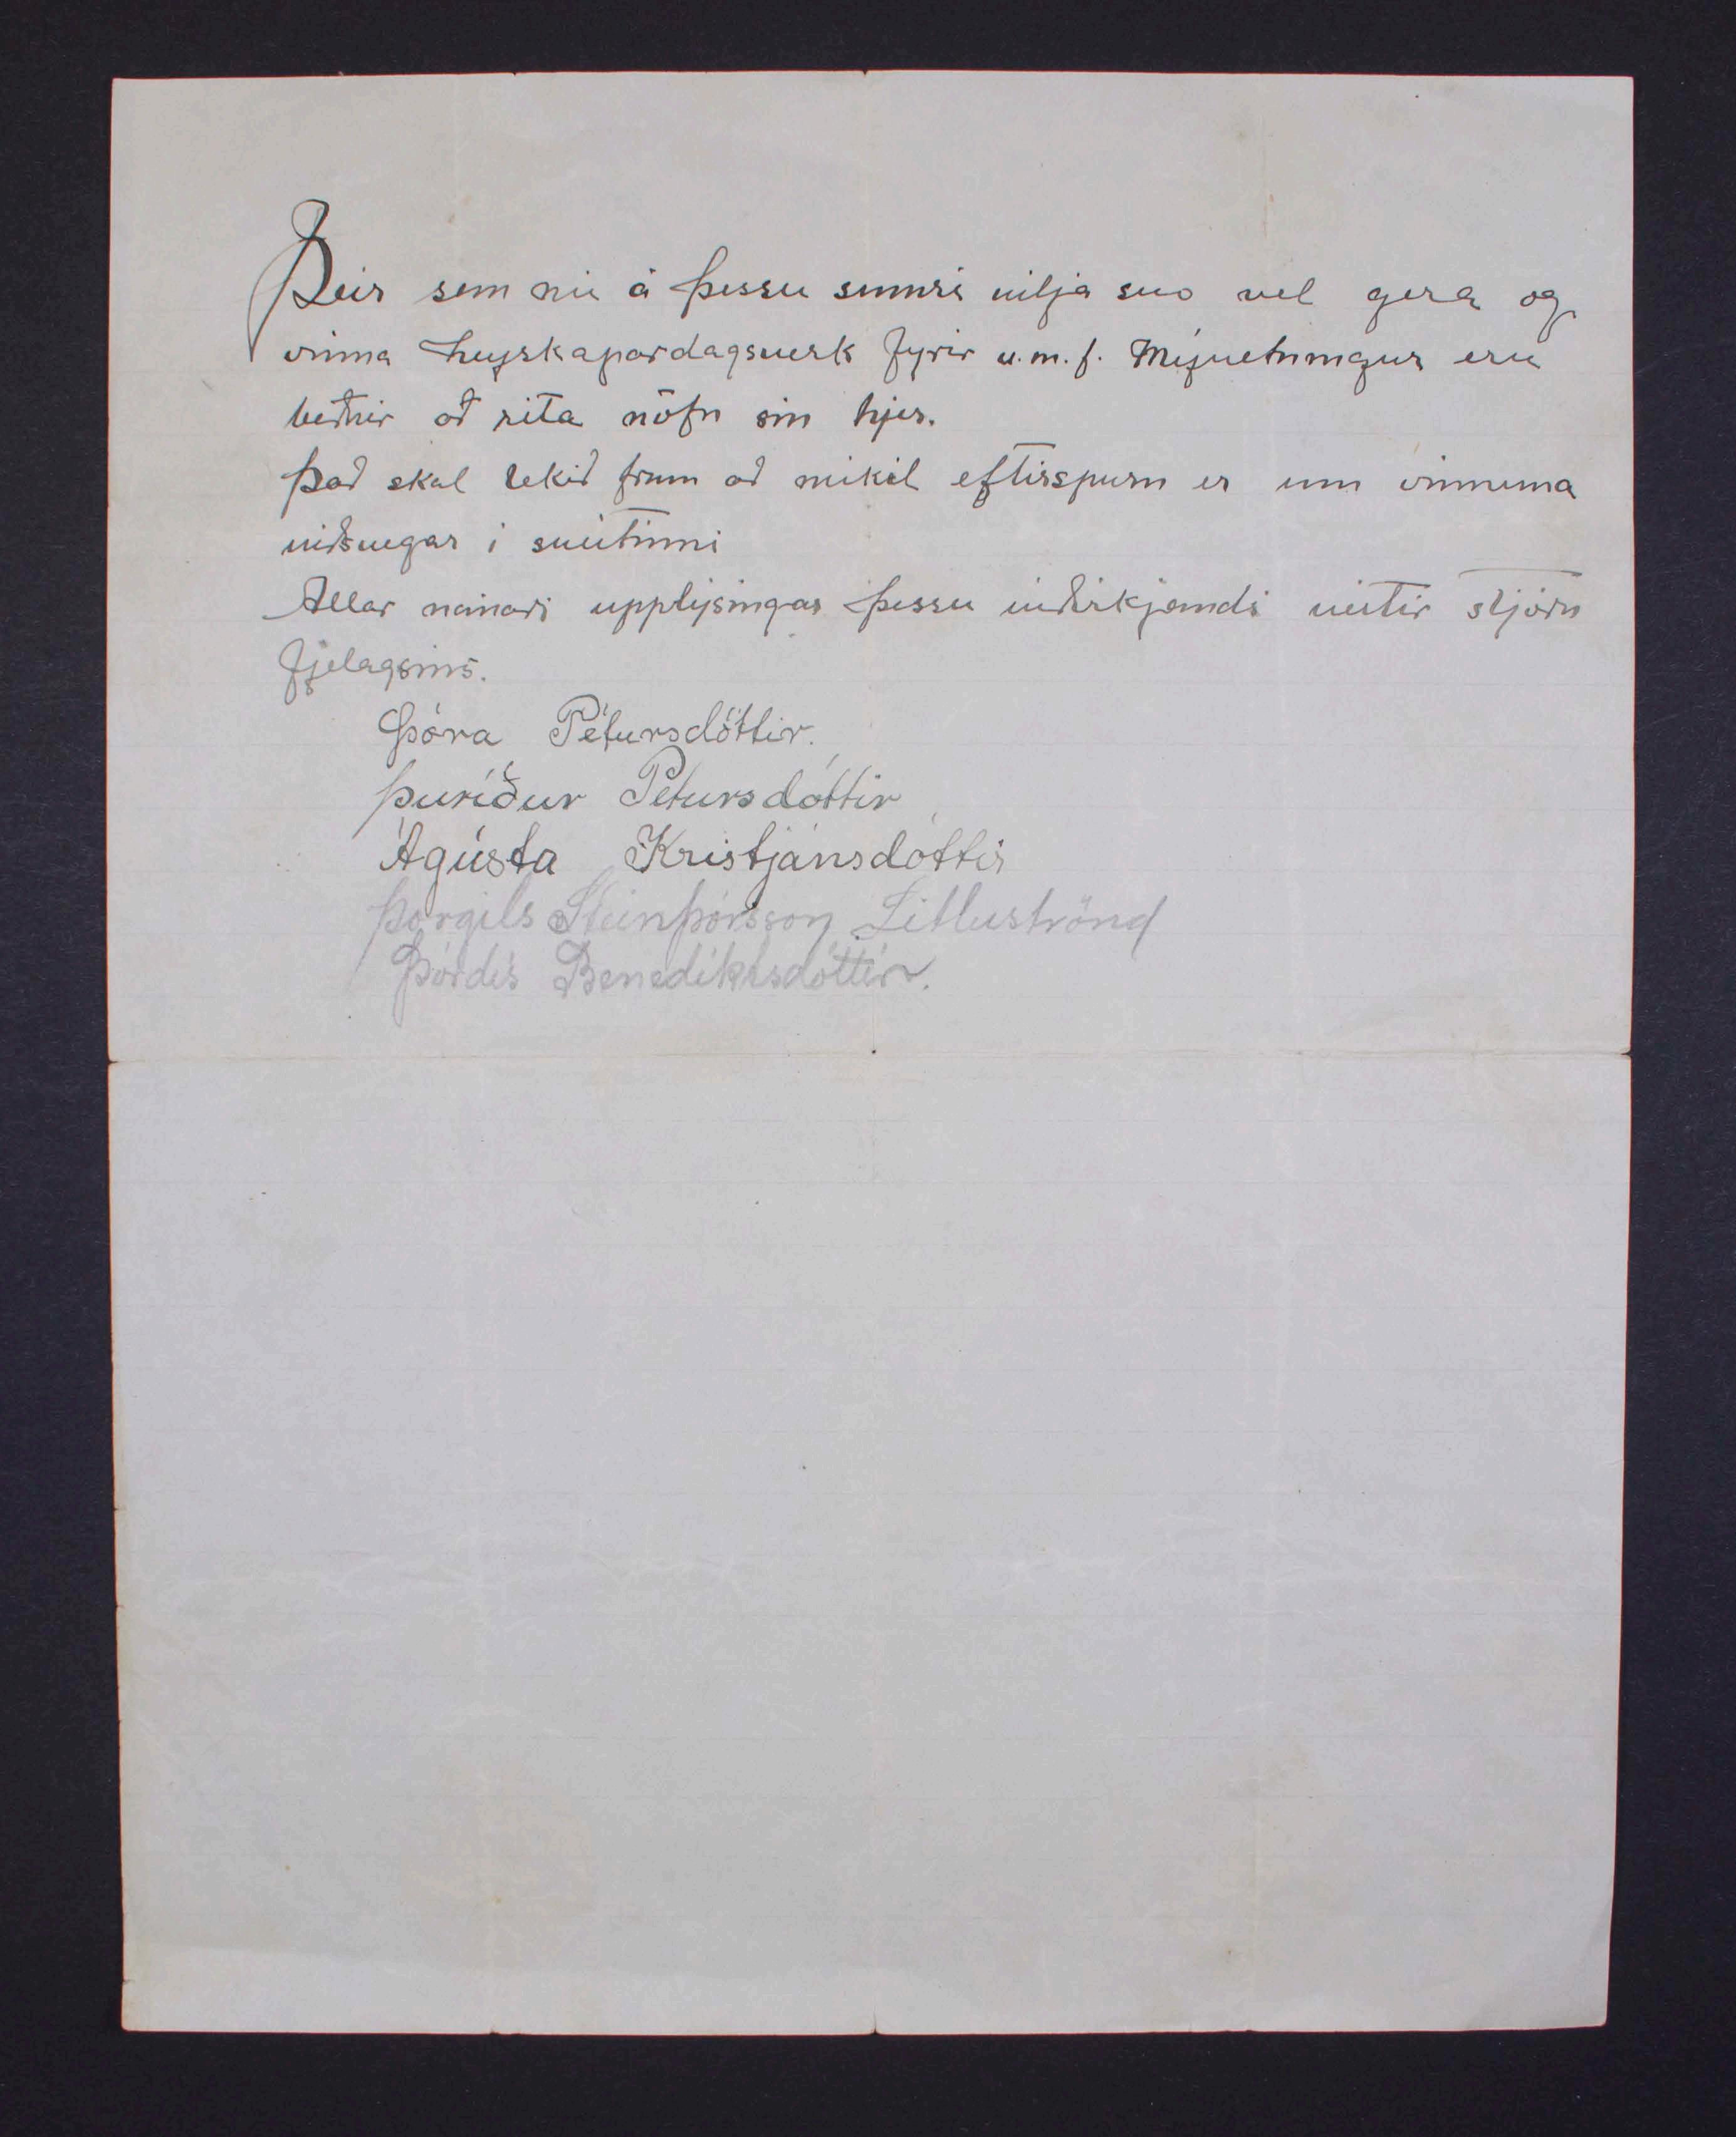 Þeir sem nú á þessu sumri vilja svo vel gera og
vinna heyskapardagsverk fyrir u.m.f. Mývetningur eru
beðnir að rita nöfn sín hjer.
Það skal tekið fram að mikil eftirspurn er um vinnuna
viðsvegar i sveitinni
Allar nánari upplýsingar þessu viðvikjandi veitir stjórn
fjelagsins.
Þóra Pétursdóttir.
Þuríður Pétursdóttir
Ágústa Kristjánsdóttir
Þorgils Steinþórsson Litluströnd
Þórdís Benediktsdóttir.